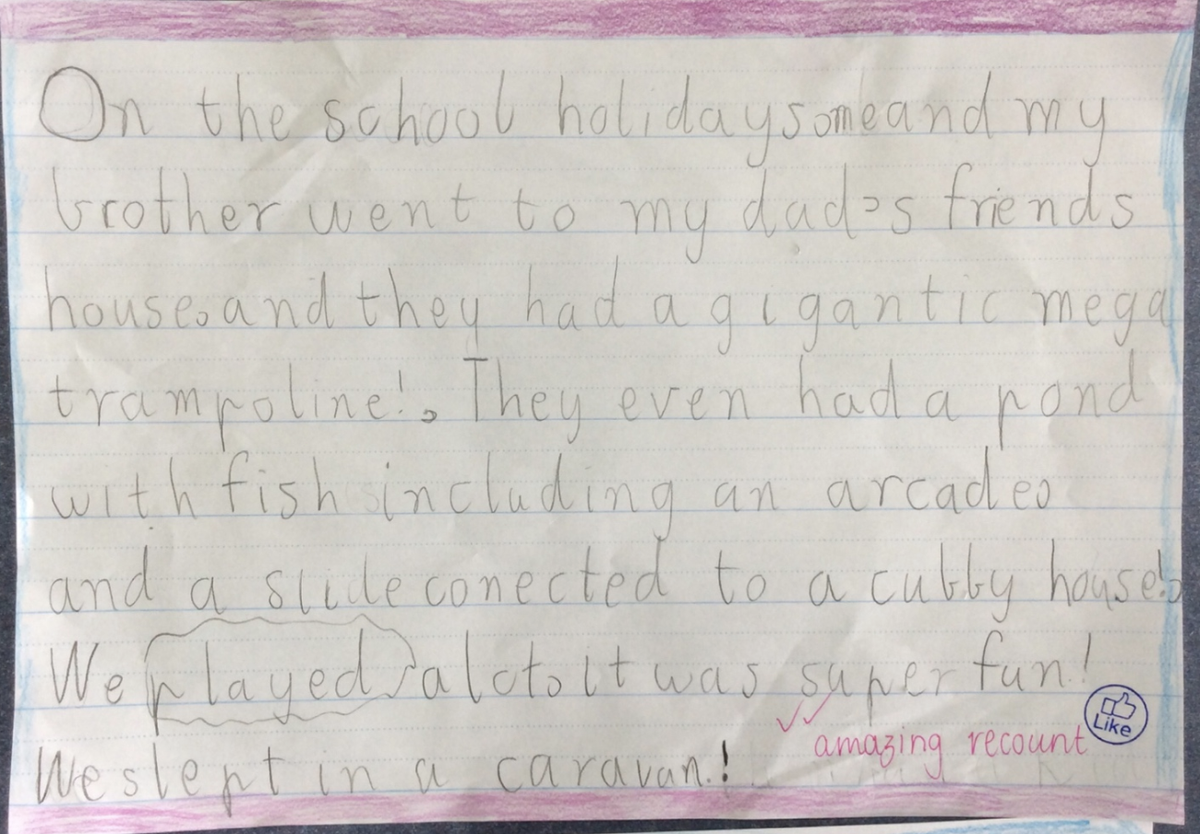 On the school holidays. me and my
brother went to my dad's friends
house. and they had a gigantic mega
trampoline!. They even had a pond
with fish including an arcade.
and a slide conected to a cubby house!.
We played alot. it was super fun!
Like
amazing recount
We slept in a caravan.!